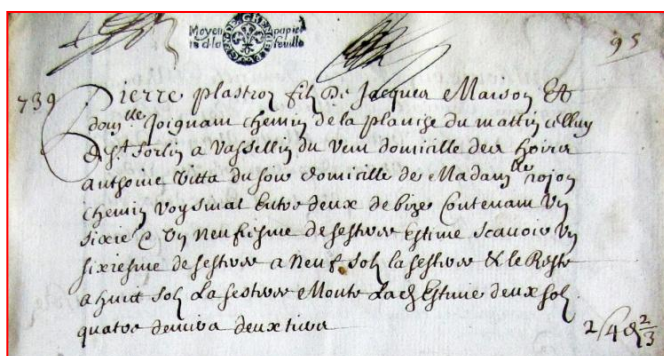 95
Moyen papier
la feuille
739
Pierre plastron filz De Jacques Maison Et
dom.lle Joignant chemin de la planize du mattin celluy
de St Sorlin a Vassellin du Vent domicille des hoirs
anthoine Vitta du soir domicille de Madam.lle rojon
chemin Voysinal Entre deux de bize Contenant Un
sixie & Un Neufiesme de sestiree Estime scavoir Un
sixiesme de sestiree a Neuf solz la sestiree & le Reste
a huict solz La sestiree Monte Lad Estime deux solz
quatre deniers deux tiers
2/4 d 2/3